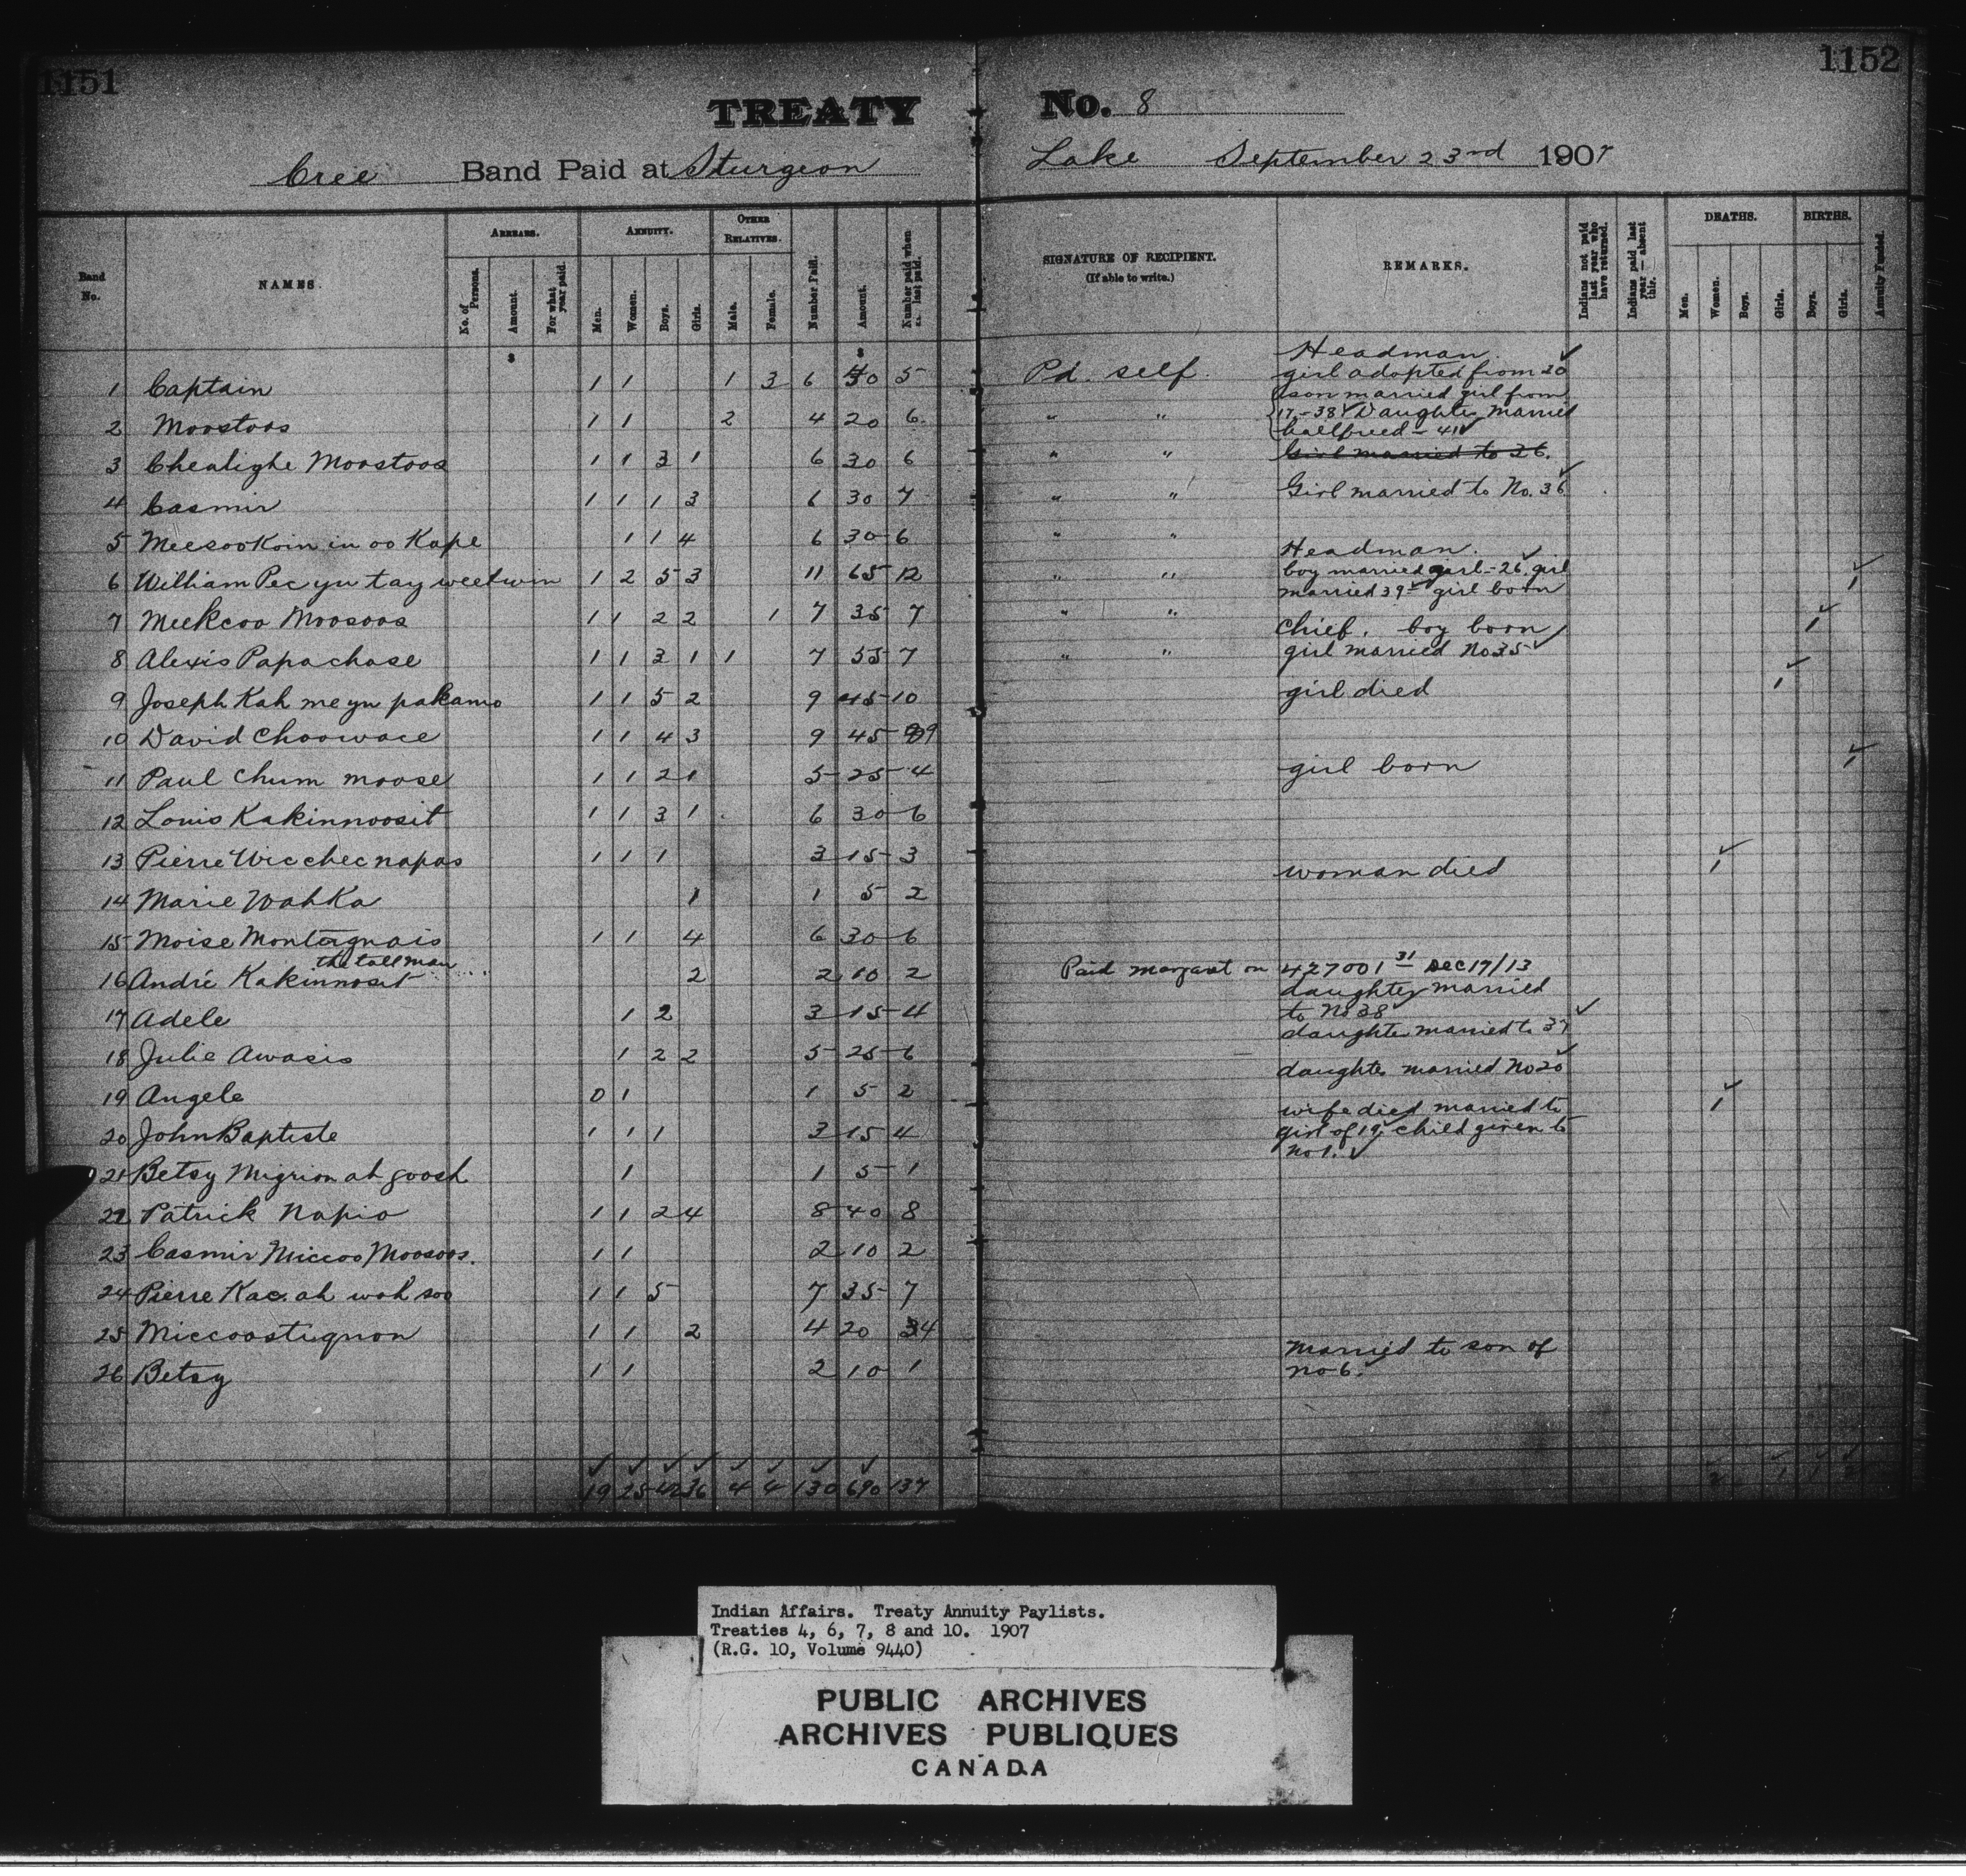 1151
1152
TREATY No. 8
Cree Band Paid at Sturgeon Lake September 23rd 1907
Band No.
NAMES.
ARREARS.
No. of Persons.
Amount.
For what year paid.
ANNUITY.
Men.
Women.
Boys.
Girls.
OTHER RELATIVES.
Male.
Female.
Number Paid.
Amount.
Number paid when last paid.
SIGNATURE OF RECIPIENT.
(If able to write.)
REMARKS.
Indians not paid last year who have returned.
Indians paid last year — absent this.
DEATHS.
Men.
Women.
Boys.
Girls.
BIRTHS.
Boys.
Girls.
Annuity Funded.
$ $
Headman
1 Captain 1 1 1 3 6 5 Pd. self. girl adopted from 20 ✓
son married girl from
2 Moostoos 1 1 2 4 20 6 " " 17-38 ✓ Daughter Married
halfbreed - 41 ✓
3 Chealighe Moostoos 1 1 3 1 6 30 6 " " Girl married to 26.
4 Casmir 1 1 1 3 6 30 7 " " Girl married to No. 36 ✓
5 Meesookoin in oo Kape 1 1 4 6 30 6 " "
Headman.
6 William Pec yu tay weetwin 1 2 5 3 11 65 12 " " boy married girl - 26 ✓ girl
married 39 ✓ girl born 1 ✓
7 Meekcoo Moosoos 1 1 2 2 1 7 35 7 " "
Chief. boy born 1 ✓
8 Alexis Papachase 1 1 3 1 1 7 55 7 " " girl married No 35 ✓
9 Joseph Kah me yu pakamo 1 1 5 2 9 45 10 girl died 1 ✓
10 David Choowace 1 1 4 3 9 45 9
11 Paul Chum moose 1 1 2 1 5 25 4 girl born 1 ✓
12 Louis Kakinnoosit 1 1 3 1 6 30 6
13 Pierre Wic chec napas 1 1 1 3 15 3
woman died 1 ✓
14 Marie Wahka 1 1 5 2
15 Moise Montagnais 1 1 4 6 30 6
the tall man
16 André Kakinnosit 2 2 10 2 Paid Margaret on 427001 31 Dec 17/13
daughter married
17 Adele 1 2 3 15 4 to No 38 ✓
daughter married to 37 ✓
18 Julie Awasis 1 2 2 5 25 6
daughter married No 20 ✓
19 Angele 0 1 1 5 2
wife died married to 1 ✓
20 John Baptiste 1 1 1 3 15 4 girl of 19 ✓ child given to
No 1. ✓
21 Betsy Mignon ah goosh 1 1 5 1
22 Patrick Napio 1 1 2 4 8 40 8
23 Casmir Miccoo Moosoos. 1 1 2 10 2
24 Pierre Kac. ah wah soo 1 1 5 7 35 7
25 Miccoostignon 1 1 2 4 20 4
Married to son of
26 Betsy 1 1 2 10 1 No 6. ✓
✓ ✓ ✓ ✓ ✓ ✓ ✓ ✓
19 25 42 36 4 4 130 690 137 2 1 1 2
Indian Affairs. Treaty Annuity Paylists.
Treaties 4, 6, 7, 8 and 10. 1907
(R.G. 10, Volume 9440)
PUBLIC ARCHIVES
ARCHIVES PUBLIQUES
CANADA